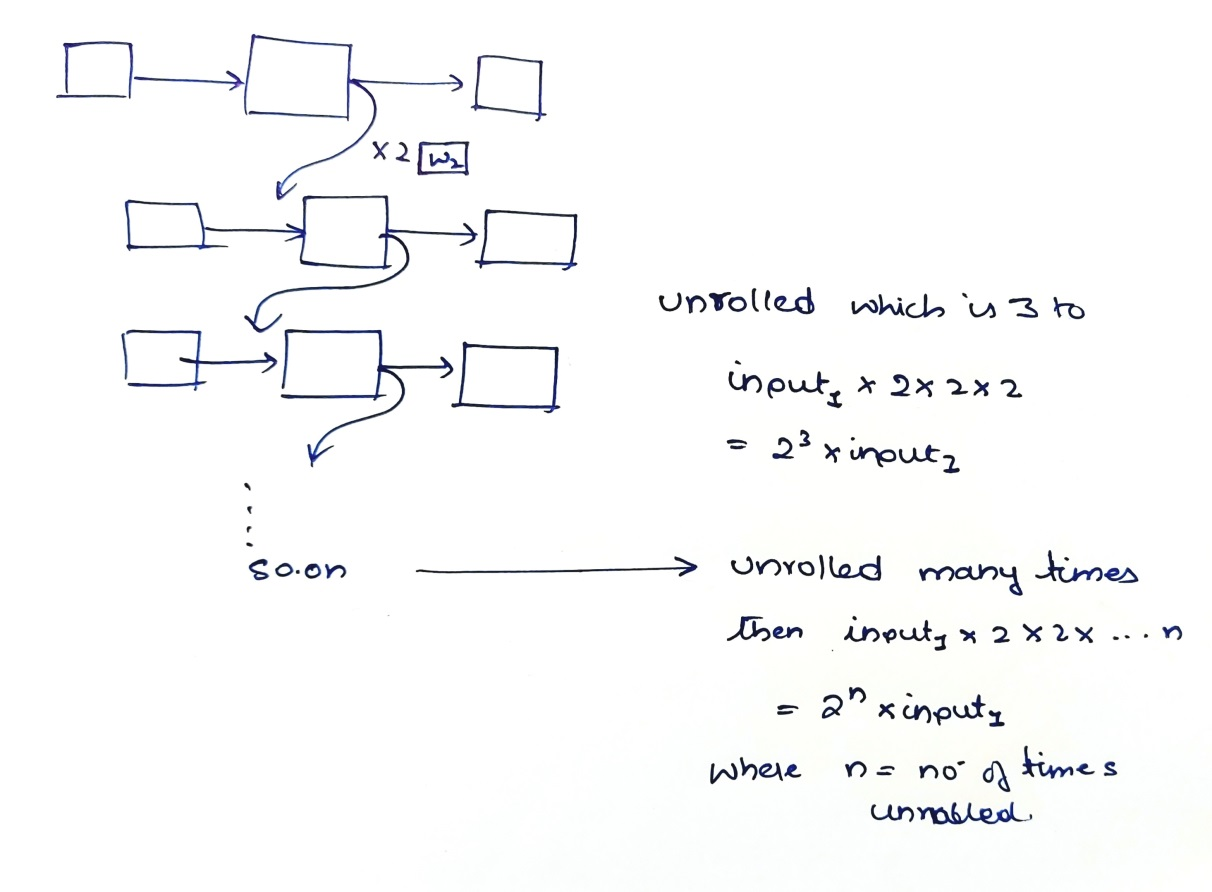 x 2 W₂
unrolled which is 3 to
input₁ x 2 x 2 x 2
= 2³ x input₂
so.on
unrolled many times
then input₁ x 2 x 2 x ... n
= 2ⁿ x input₁
where n = no of times
unrolled.